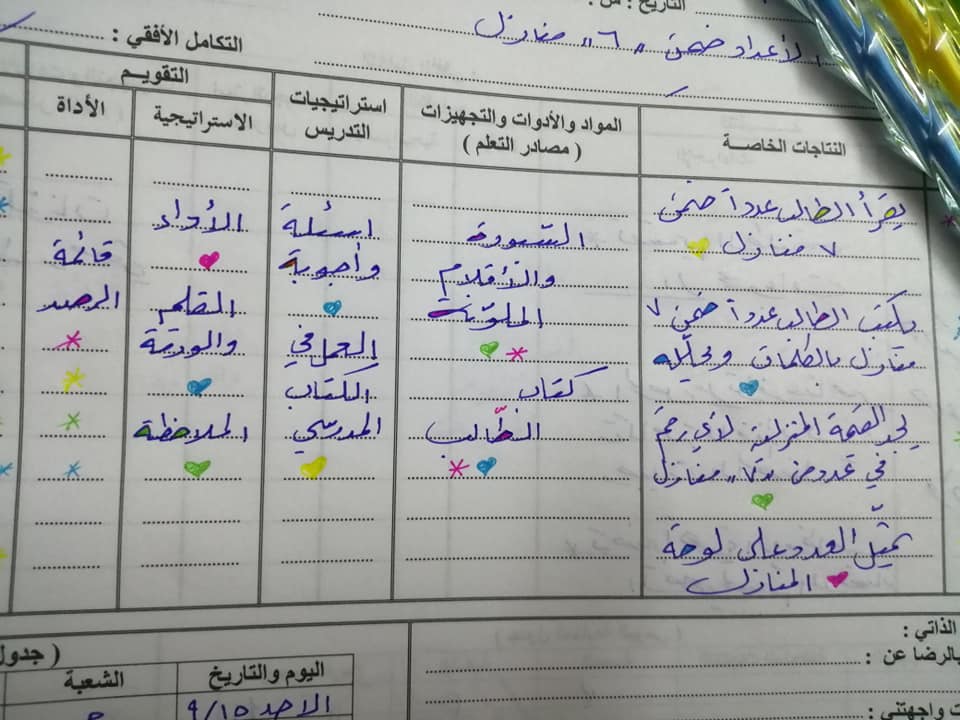 التاريخ : من :
الأعداد ضمن " ٦ " منازل
التكامل الأفقي :
النتاجات الخاصة
المواد والأدوات والتجهيزات
( مصادر التعلم )
استراتيجيات
التدريس
التقويم
الاستراتيجية
الأداة
يقرأ الطالب عدداً ضمن
٧ منازل
يكتب الطالب عدداً ضمن ٧
منازل بالكلمات ويحلله
يجد القيمة المنزلية لأي رقم
في عدد من "٧" منازل
يمثّل العدد على لوحة
المنازل
السبورة
والأقلام
الملونة
كتاب
الطّالب
اسئلة
وأجوبة
العمل في
الكتاب
المدرسي
الأداء
القلم
والورقة
الملاحظة
قائمة
الرصد
الذاتي :
بالرضا عن :
ت واجهتني :
( جدول
اليوم والتاريخ
الشعبة
الاحد ٩/١٥